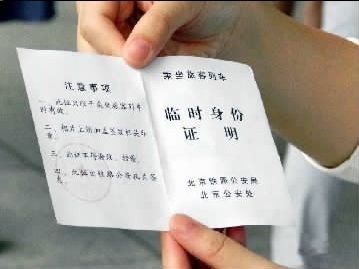 注意事项
一、此证只限于乘坐旅客列车
时有效。
二、相片上须加盖签发机关印
章。
三、此证不得涂改、转借。
四、此证由铁路公安机关签
发。
乘坐旅客列车
临时身份
证明
北京铁路公安局
北京公安处